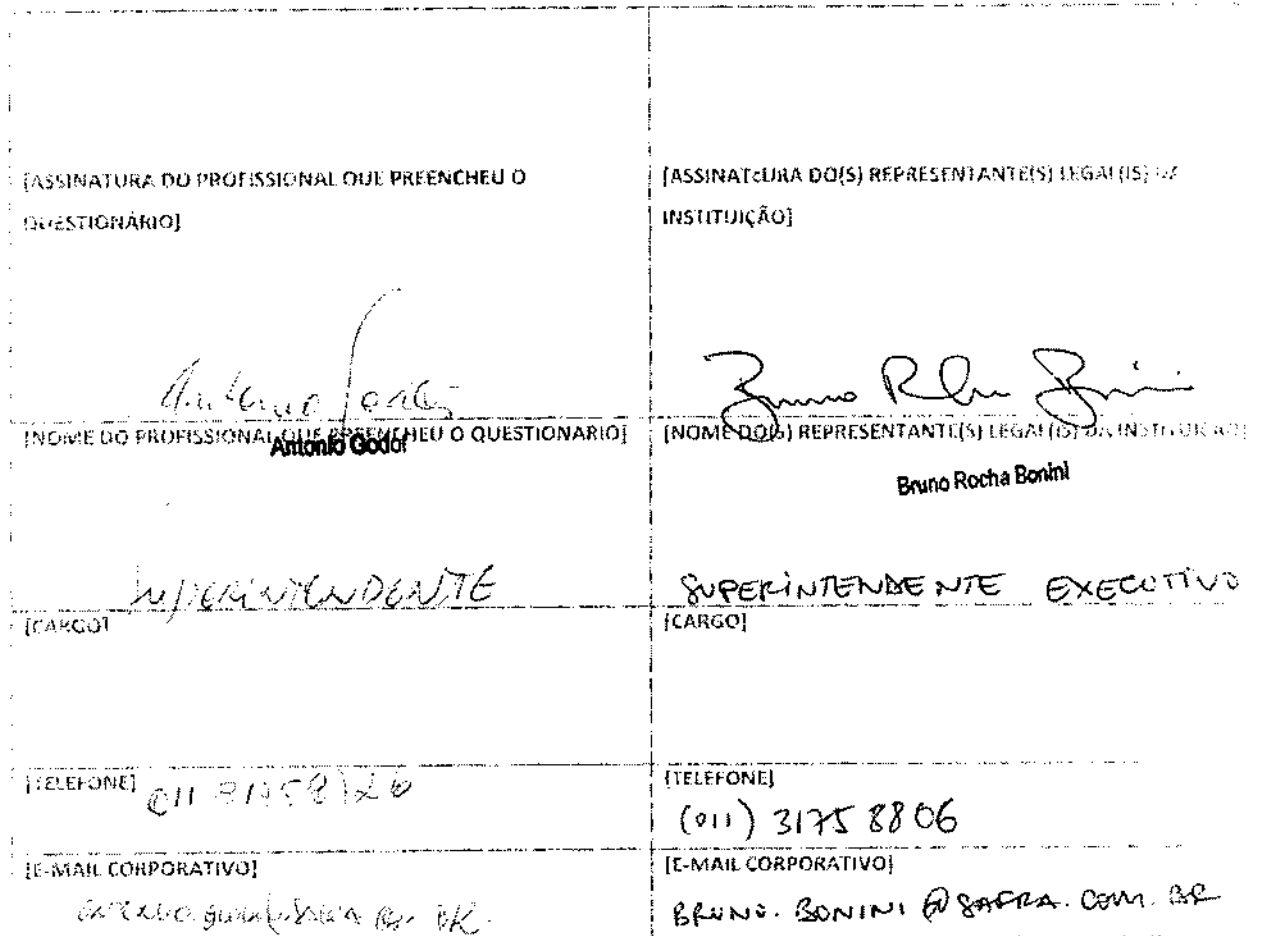 [ASSINATURA DO PROFISSIONAL QUE PREENCHEU O
QUESTIONÁRIO]
[NOME DO PROFISSIONAL QUE PREENCHEU O QUESTIONARIO]
Antonio Godoi
SUPERINTENDENTE
[CARGO]
[TELEFONE]
[E-MAIL CORPORATIVO]
[ASSINATURA DO(S) REPRESENTANTE(S) LEGAL(IS) DA
INSTITUIÇÃO]
Bruno Rocha Bonini
[NOME DO(S) REPRESENTANTE(S) LEGAL(IS) DA INSTITUIÇÃO]
Bruno Rocha Bonini
SUPERINTENDENTE EXECUTIVO
[CARGO]
[TELEFONE]
(011) 3175 8806
[E-MAIL CORPORATIVO]
BRUNO.BONINI@SAFRA.COM.BR